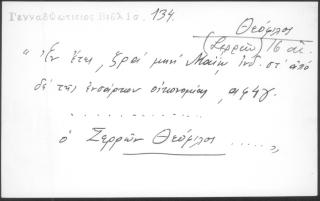 Γενναδ. 134.
Θεόφιλος
(Σερρῶν) 16 αἰ.
"Ἐν ἔτει, ζρα' μηνὶ Μαΐῳ, ἰνδ. στ' ἀπὸ
δὲ τῆς ἐνσάρκου οἰκονομίας, αφ4γ.
. . . . . . . . . . . . . . .
ὁ Σερρῶν Θεόφιλος . . . . . "